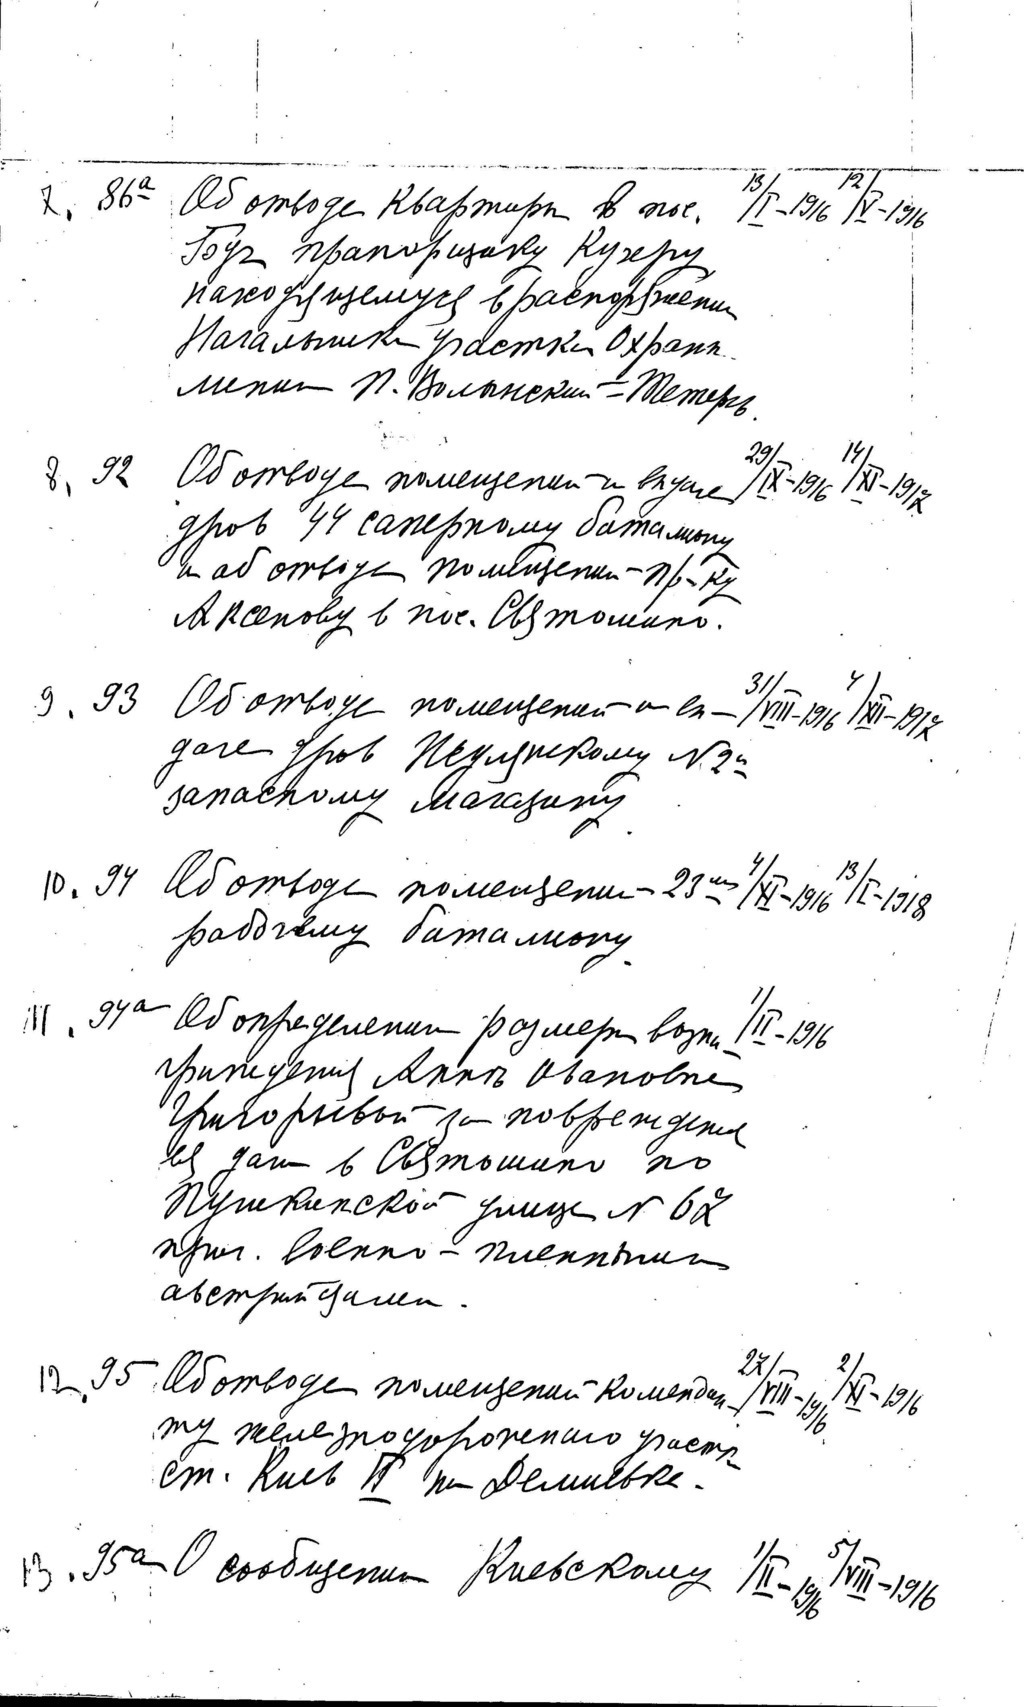 7. 86а Об отводе квартиры в пос. 13/I-1916 12/V-1916
Буча прапорщику Кучеру
находящемуся в распоряжении
Начальника участка Охраны
линии П. Волынский - Тетерев.
8. 92 Об отводе помещений и выдаче 29/IX-1916 14/XI-1917
дров 44 саперному баталиону
и об отводе помещений пр-ку
Аксенову в пос. Святошино.
9. 93 Об отводе помещений и вы- 31/VIII-1916 4/XII-1917
даче дров № 2й
запасному магазину.
10. 94 Об отводе помещений 23му 4/XI-1916 13/I-1918
рабочему баталиону.
11. 94а Об определении размера возна- 1/II-1916
граждения Анне Ивановне
Григорьевой за повреждения
ея дачи в Святошино по
Пушкинской улице № 67
прож. военно-пленными
австрийцами.
12. 95 Об отводе помещений комендан- 27/VIII-1916 2/XI-1916
ту железнодорожного участка
ст. Киев II на Демиевке.
13. 95а О сообщении Киевскому 1/II-1916 5/VIII-1916